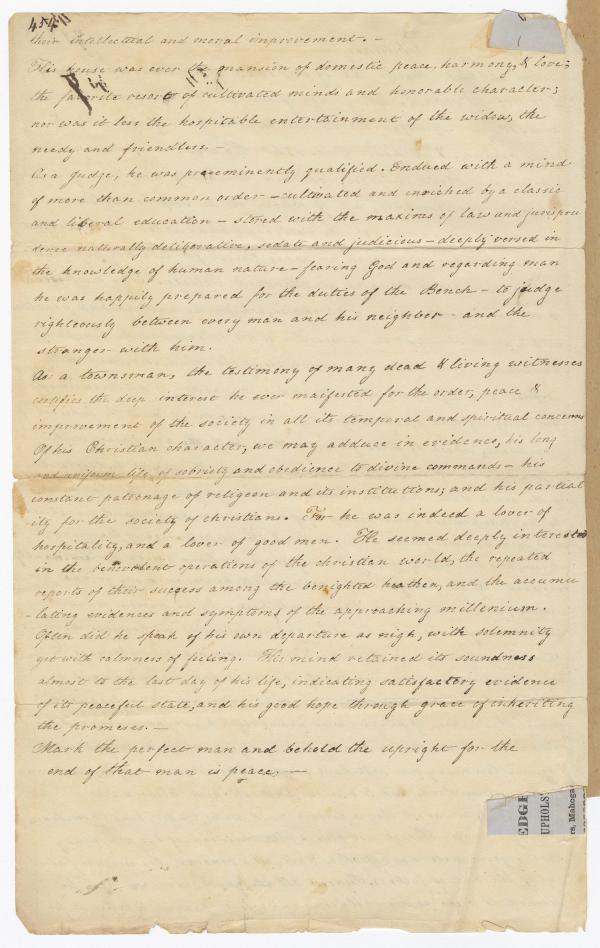 their intellectual and moral improvement. —
His house was ever the mansion of domestic peace, harmony, & love;
the favorite resort of cultivated minds and honorable character;
nor was it less the hospitable entertainment of the widow, the
needy and friendless. —
As a judge, he was preeminently qualified. Endued with a mind
of more than common order — cultivated and inriched by a classic
and liberal education — stored with the maxims of law and jurispru
dence naturally deliberative, sedate and judicious — deeply versed in
the knowledge of human nature — fearing God and regarding man
he was happily prepared for the duties of the Bench — to judge
righteously between every man and his neighbor and the
stranger with him.
As a townsman, the testimony of many dead & living witnesses
certifies the deep interest he ever maifested for the order, peace &
improvement of the society in all its temporal and spiritual concerns
Of his Christian character, we may adduce in evidence, his long
and uniform life of sobriety and obedience to divine commands — his
constant patronage of religeon and its institutions; and his partial
ity for the society of christians. For he was indeed a lover of
hospitality, and a lover of good men. He seemed deeply interested
in the benevolent operations of the christian world, the repeated
reports of their success among the benighted heathen, and the accumu
-lating evidences and symptoms of the approaching millenium.
Often did he speak of his own departure as nigh, with solemnity
yet with calmness of feeling. His mind retained its soundness
almost to the last day of his life, indicating satisfactory evidence
of its peaceful state, and his good hope through grace of inheriting
the promeses. —
Mark the perfect man and behold the upright for the
end of that man is peace, —
EDGE
UPHOLS
rs, Mahoga